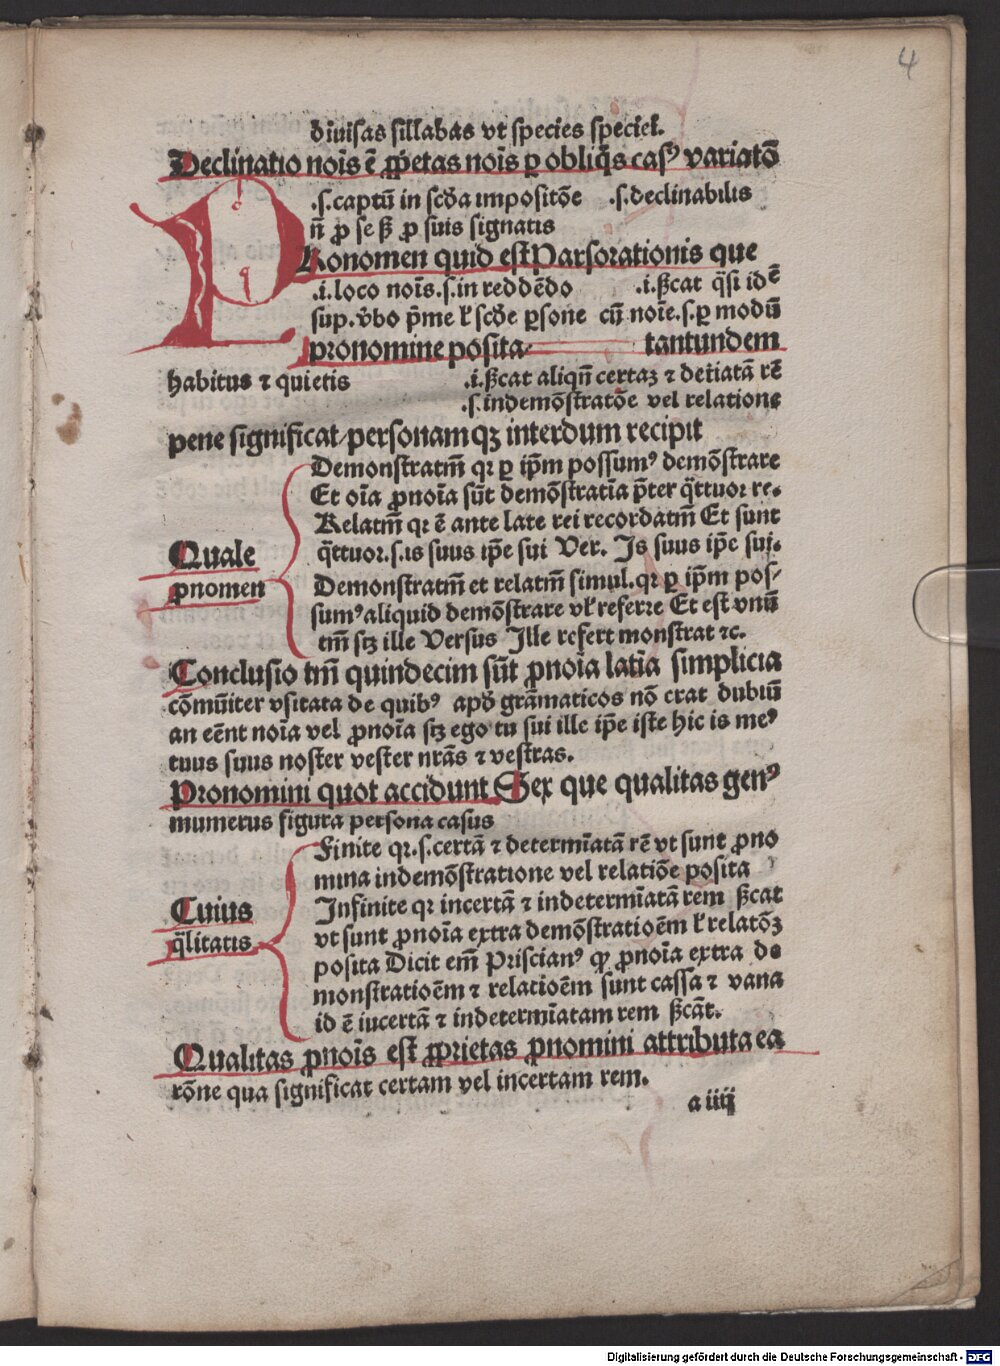 4
diuisas sillabas vt species speciei.
Declinatio noīs ē ꝓpetas noīs ꝑ obliq̄s casꝰ variatō
.s.captū in scd̄a impositōe .s.declinabilis
n̄ ꝓ se ß ꝓ suis signatis
PRonomen quid est Pars orationis que
.i.loco noīs.s.in reddēdo .i.ßcat q̄si idē
sup.v̄bo p̄me ł scd̄e ꝑsone cū noīe.s.ꝑ modū
pronomine posita tantundem
habitus ⁊ quietis .i.ßcat aliqn̄ certaꝫ ⁊ det̄iatā rē
.s.indemōstratōe vel relatione
pene significat/personamqꝫ interdum recipit
Demonstratm̄ qꝛ ꝑ ip̄m possumꝰ demōstrare
Et oīa ꝓnoīa sūt demōstratīa p̄ter q̄ttuor re.
Relatm̄ qꝛ ē ante late rei recordatm̄ Et sunt
q̄ttuor.s.is suus ip̄e sui Ver. Is suus ip̄e sui.
Quale
ꝓnomen
Demonstratm̄ et relatm̄ simul.qꝛ ꝑ ip̄m pos⸗
sumꝰ aliquid demōstrare vł referre Et est vnū
tm̄ sꝫ ille Versus Ille refert monstrat ⁊c.
Conclusio tm̄ quindecim sūt ꝓnoīa latīa simplicia
cōmūiter vsitata de quibꝰ apd̄ grāmaticos nō erat dubiū
an eēnt noīa vel ꝓnoīa sꝫ ego tu sui ille ip̄e iste hic is meꝰ
tuus suus noster vester nrās ⁊ vestras.
Pronomini quot accidunt Sex que qualitas genꝰ
numerus figura persona casus
Finite qꝛ.s.certā ⁊ determīatā rē vt sunt ꝓno
mina indemōstratione vel relatiōe posita
Cuius
q̄litatis
Infinite qꝛ incertā ⁊ indetermīatā rem ßcat
vt sunt ꝓnoīa extra demōstratioēm ł relatōꝫ
posita Dicit em̄ Priscianꝰ ꝙ ꝓnoīa extra de
monstratioēm ⁊ relatioēm sunt cassa ⁊ vana
id ē iucertā ⁊ indetermīatam rem ßcāt.
Qualitas ꝓnoīs est ꝓprietas ꝓnomini attributa ea
rōne qua significat certam vel incertam rem.
a iiij
Digitalisierung gefördert durch die Deutsche Forschungsgemeinschaft - DFG